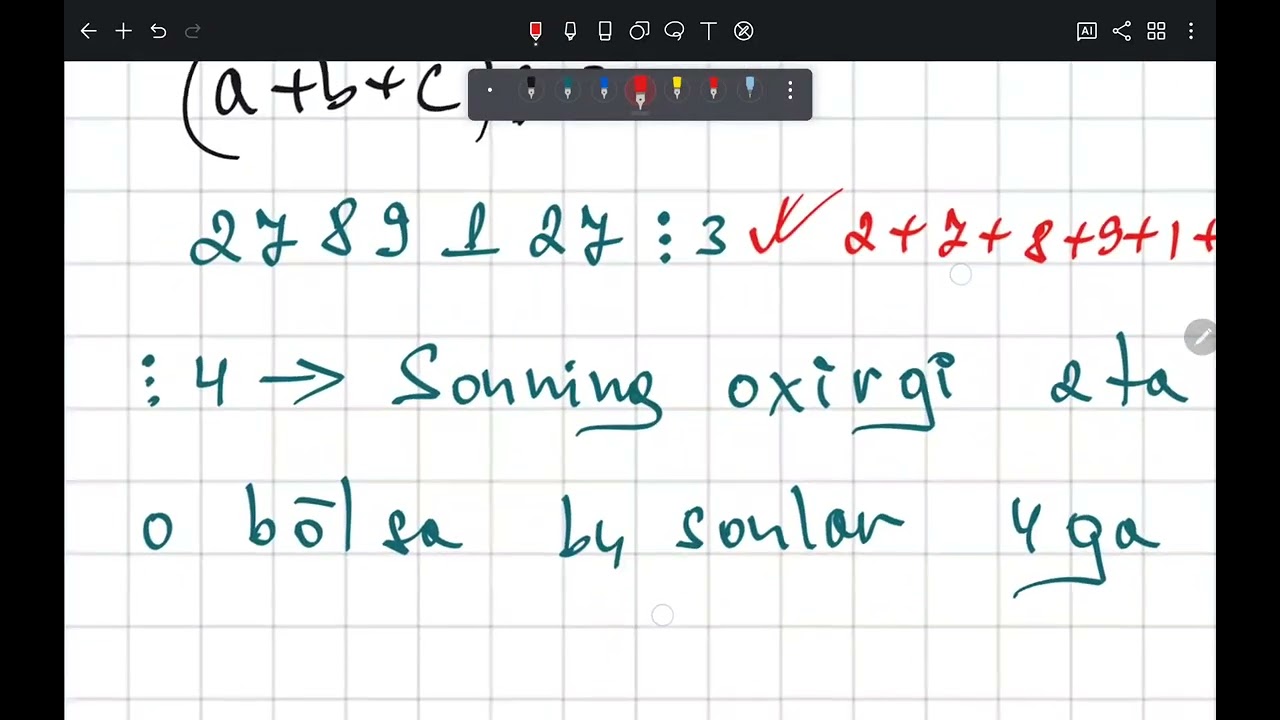 (a+b+c)
2789127 ⋮ 3 ✓ 2+7+8+9+1+
⋮ 4 → Sonning oxirgi 2 ta
0 bōlsa bu sonlar 4 ga